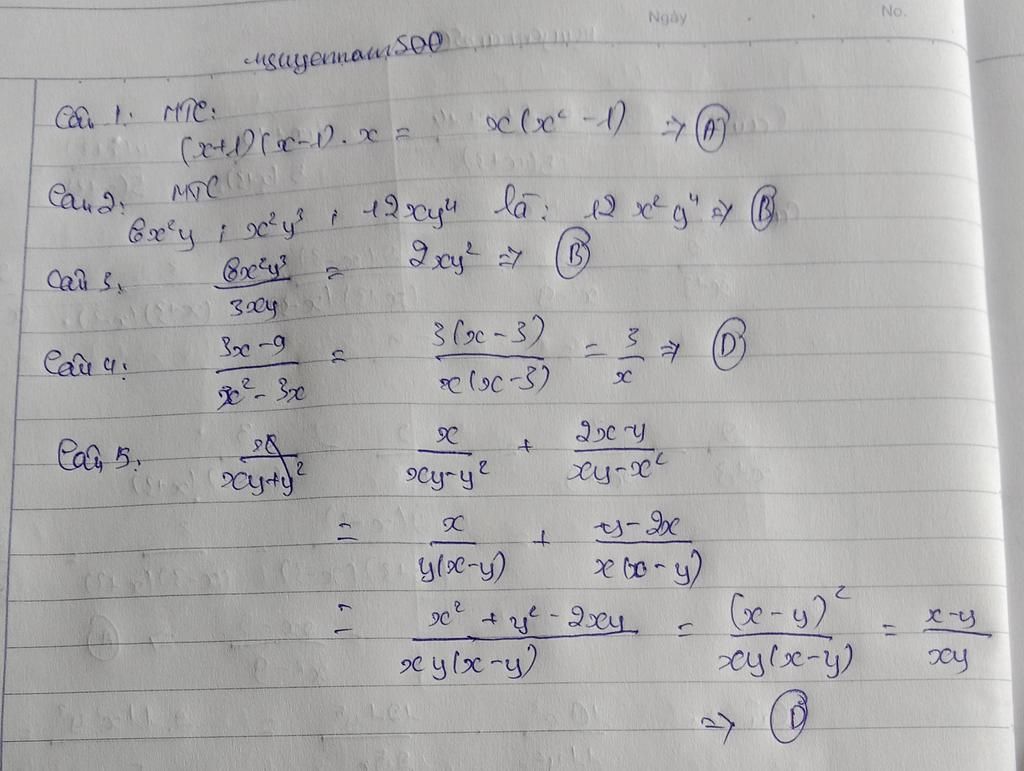 Ngày No.
nguyennam500
Câu 1: MTC:
(x+1)(x-1).x = x(x² - 1) => (A)
Câu 2: MTC
6x²y ; x²y³ ; 12xy⁴ là: 12x²y⁴ => (B)
Câu 3: 6x²y³/3xy = 2xy² => (B)
Câu 4: (3x-9)/(x²-3x) = 3(x-3)/(x(x-3)) = 3/x => (D)
Câu 5: x/(xy-y²) + (2x-y)/(xy-x²)
= x/(y(x-y)) + (y-2x)/(x(x-y))
= (x² + y² - 2xy)/(xy(x-y)) = (x-y)²/(xy(x-y)) = (x-y)/xy
=> (D)